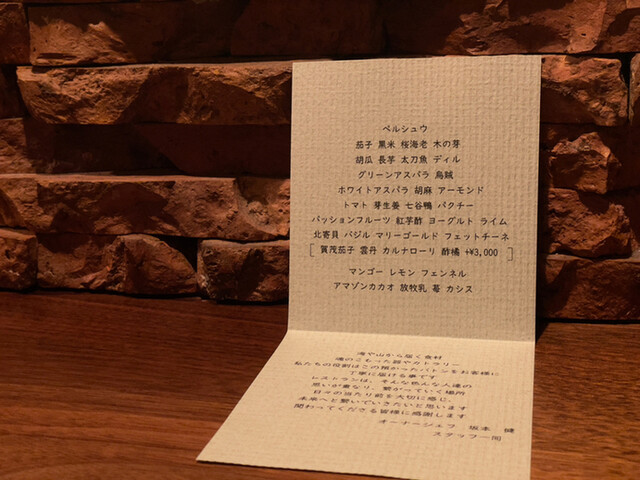 ペルシュウ
茄子 黒米 桜海老 木の芽
胡瓜 長芋 太刀魚 ディル
グリーンアスパラ 烏賊
ホワイトアスパラ 胡麻 アーモンド
トマト 芽生姜 七谷鴨 パクチー
パッションフルーツ 紅芋酢 ヨーグルト ライム
北寄貝 バジル マリーゴールド フェットチーネ
[ 賀茂茄子 雲丹 カルナローリ 酢橘 +¥3,000 ]
マンゴー レモン フェンネル
アマゾンカカオ 放牧乳 苺 カシス
海や山から届く食材
魂のこもった器やカトラリー
私たちの役割はこの預かったバトンをお客様に
丁寧に届ける事です
レストランは、そんな色んな人達の
思いが重なり、繋がっていく場所
日々の当たり前を大切に感じ、
未来へと繋いでいきたいと思います
関わってくださる皆様に感謝します
オーナーシェフ 坂本 健
スタッフ一同